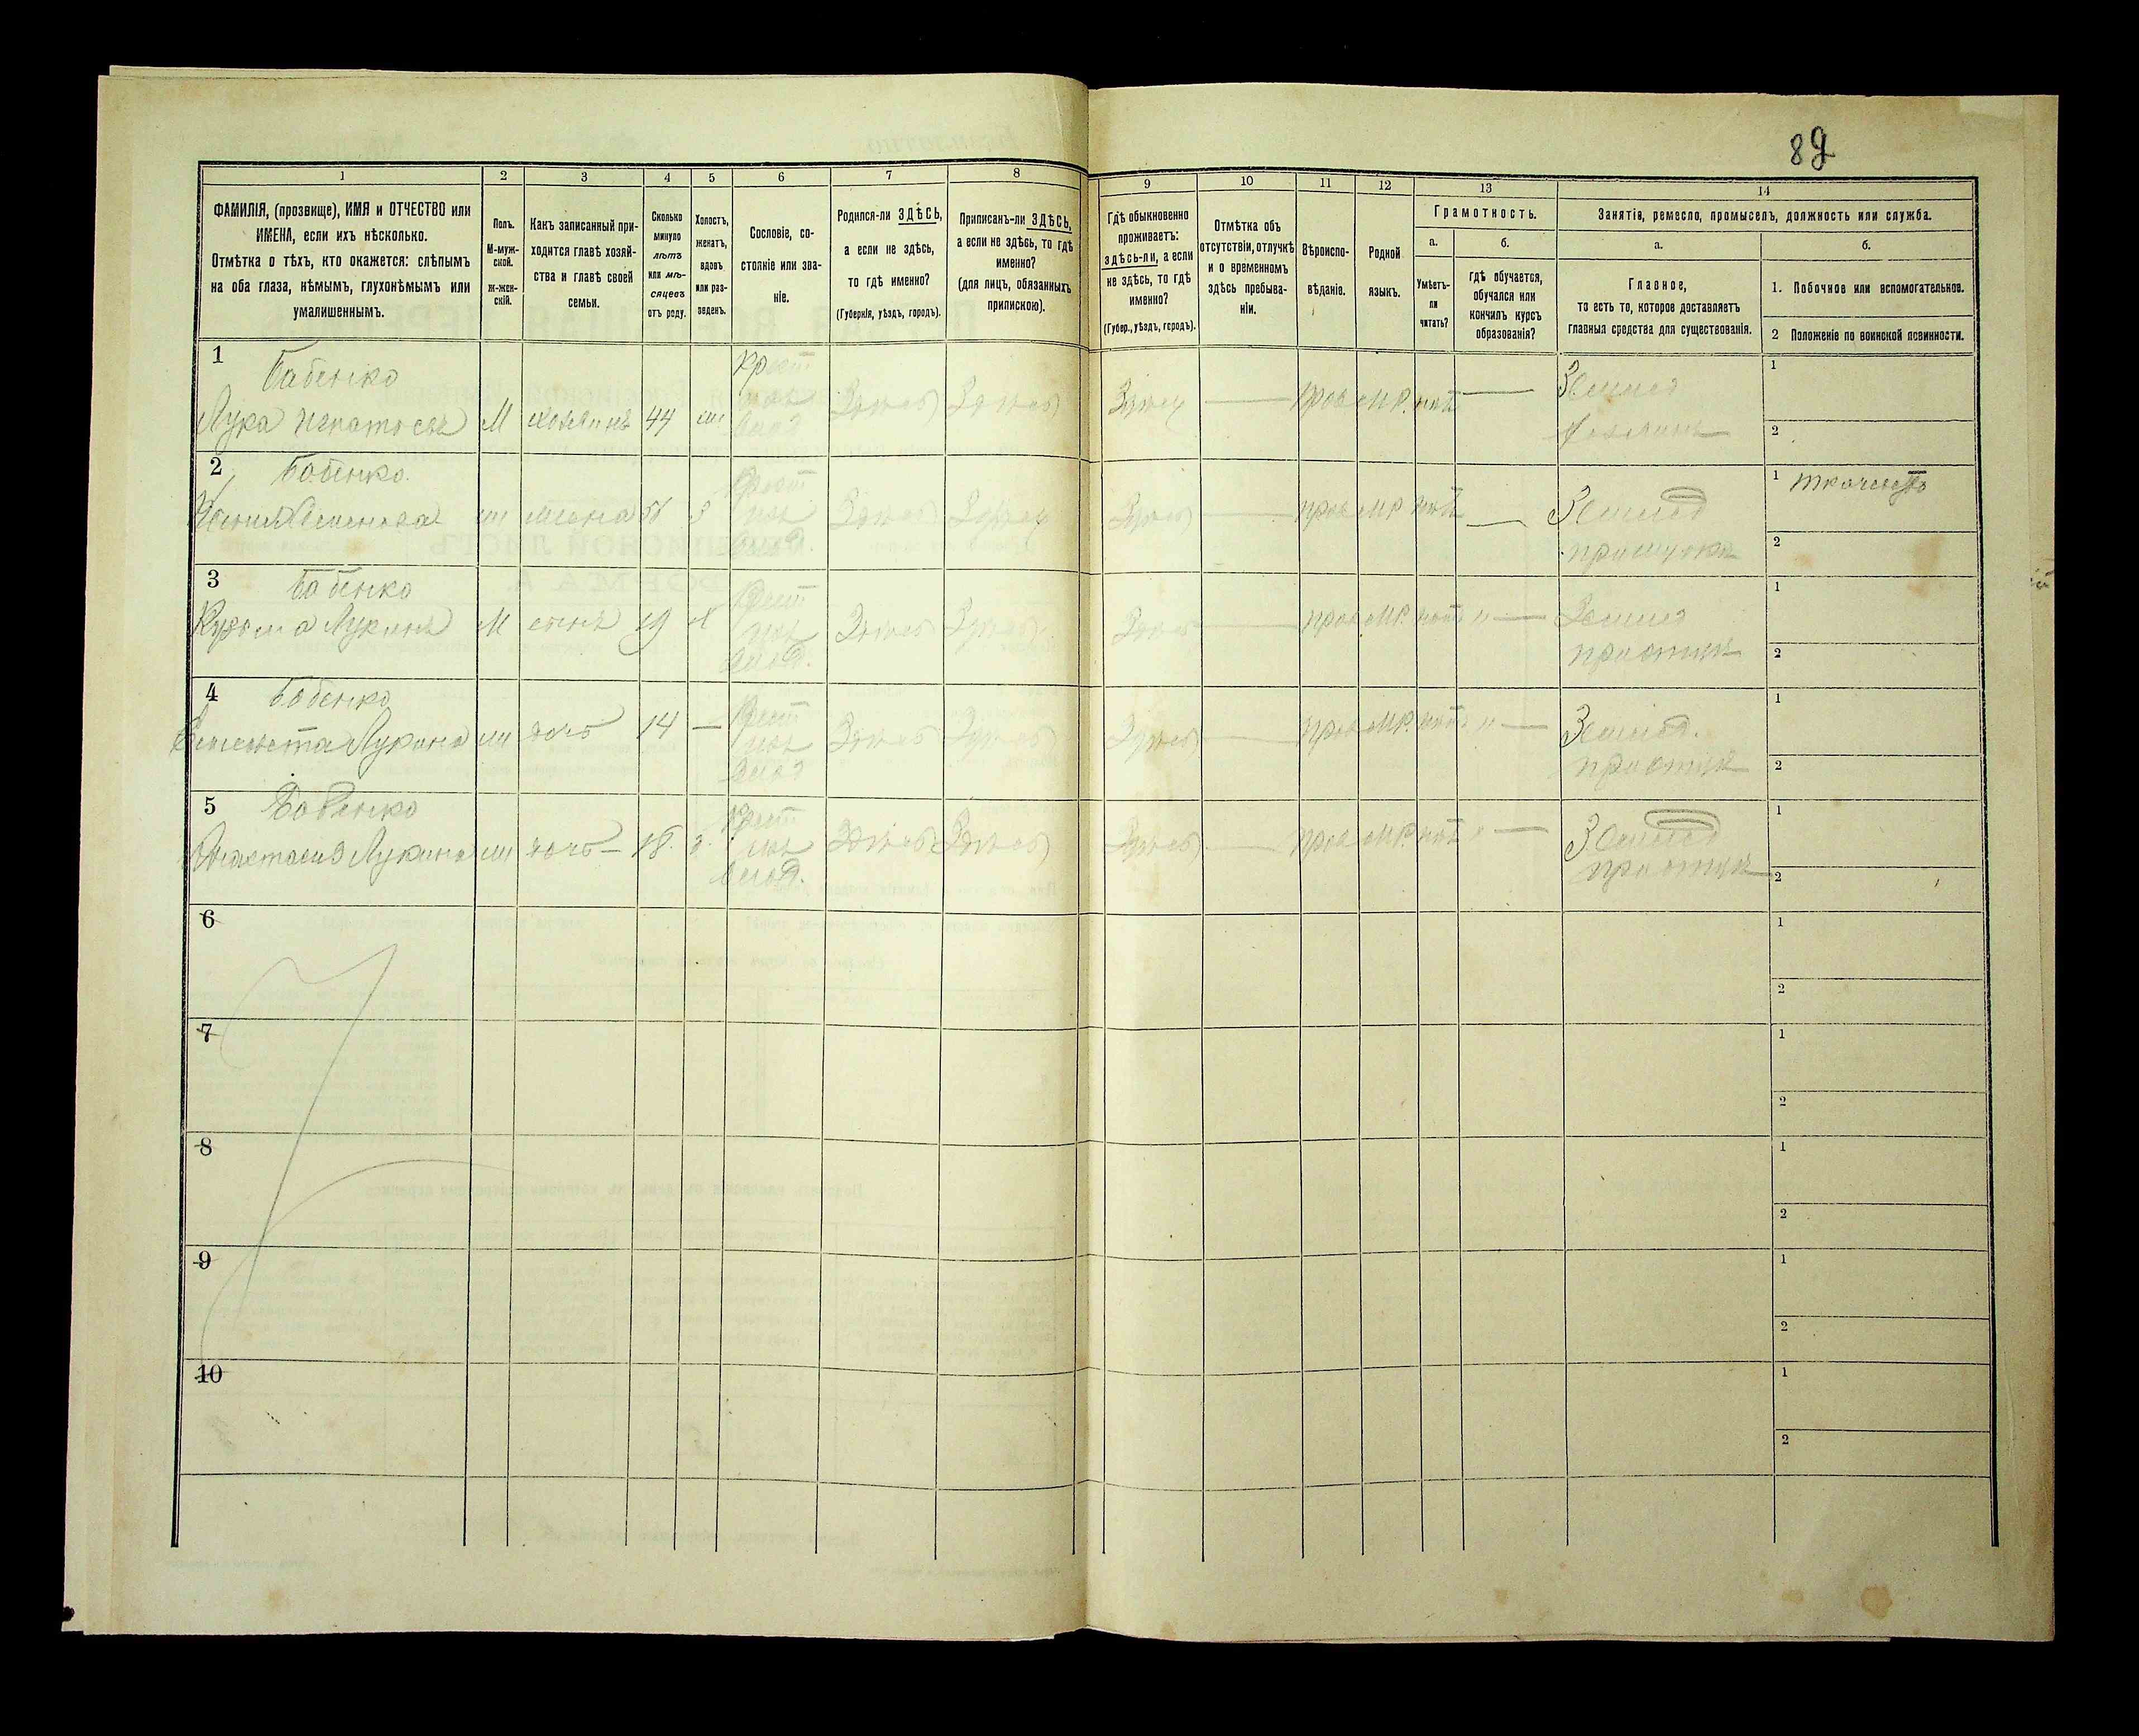 89
1 2 3 4 5 6 7 8 9 10 11 12 13 14
ФАМИЛІЯ, (прозвище), ИМЯ и ОТЧЕСТВО или
ИМЕНА, если ихъ нѣсколько.
Отмѣтка о тѣхъ, кто окажется: слѣпымъ
на оба глаза, нѣмымъ, глухонѣмымъ или
умалишеннымъ.
Полъ.
М-муж-
ской.
ж-жен-
скій.
Какъ записанный при-
ходится главѣ хозяй-
ства и главѣ своей
семьи.
Сколько
минуло
лѣтъ
или мѣ-
сяцевъ
отъ роду.
Холостъ,
женатъ,
вдовъ
или раз-
веденъ.
Сословіе, со-
стояніе или зва-
ніе.
Родился-ли ЗДѢСЬ,
а если не здѣсь,
то гдѣ именно?
(Губернія, уѣздъ, городъ).
Приписанъ-ли ЗДѢСЬ,
а если не здѣсь, то гдѣ
именно?
(для лицъ, обязанныхъ
припискою).
Гдѣ обыкновенно
проживаетъ:
здѣсь-ли, а если
не здѣсь, то гдѣ
именно?
(Губер., уѣздъ, городъ).
Отмѣтка объ
отсутствіи, отлучкѣ
и о временномъ
здѣсь пребыва-
ніи.
Вѣроиспо-
вѣданіе.
Родной
языкъ.
Грамотность.
а.
Умѣетъ-
ли
читать?
б.
гдѣ обучается,
обучался или
кончилъ курсъ
образованія?
Занятіе, ремесло, промыселъ, должность или служба.
а.
Главное,
то есть то, которое доставляетъ
главныя средства для существованія.
б.
1. Побочное или вспомогательное.
2 Положеніе по воинской повинности.
1 Бабенко Крест 1
Лука Игнатьевъ М хозяинъ 44 Здѣсь Здѣсь Здѣсь — Прав МР. нѣтъ — Земля
хозяинъ 2
2 Бабенко Крест 1 ткачество
Семенова жена Здѣсь Здѣсь Здѣсь — прав МР нѣтъ — Земля
2
3 Бабенко Крест 1
Кузьма Лукинъ М сынъ 19 Х Здѣсь Здѣсь Здѣсь — прав МР. нѣтъ " — Земля
2
4 Бабенко Крест 1
Лукина дочь 14 — Здѣсь Здѣсь Здѣсь — прав МР. нѣтъ " — Земля
2
5 Бабенко Крест 1
Анастасия Лукина дочь 18. Здѣсь Здѣсь Здѣсь — прав МР. нѣтъ " — Земля
2
6 1
2
7 1
2
8 1
2
9 1
2
10 1
2